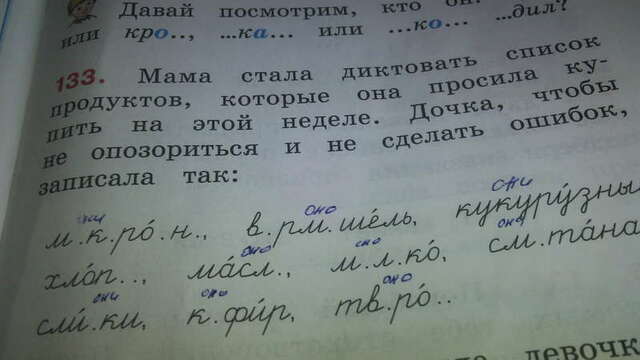 Давай посмотрим, кто он:
или кро.., ...ка... или ...ко... ...дил?
133. Мама стала диктовать список
продуктов, которые она просила ку-
пить на этой неделе. Дочка, чтобы
не опозориться и не сделать ошибок,
записала так:
они оно они
м.к.ро́.н., в.рм.ше́ль, кукуру́зны
оно оно оно
хло́п.., ма́сл., м.л.ко́, см.та́на
они оно оно
сли́.ки, к.фи́р, тв.ро́..
девочк